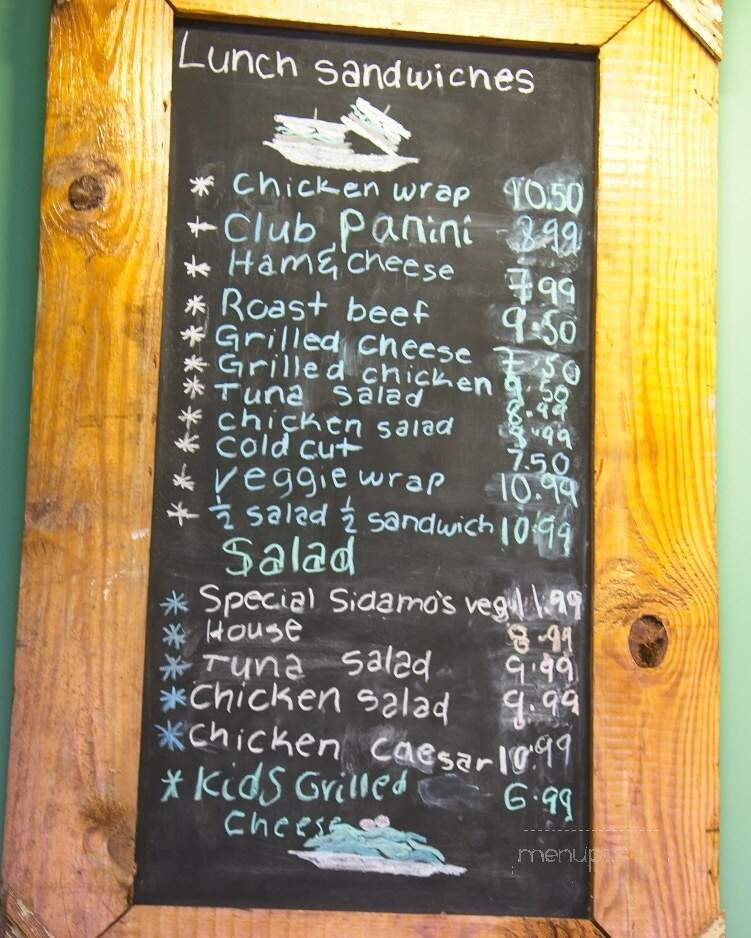 Lunch sandwiches
* Chicken wrap 10.50
* Club Panini 8.99
* Ham & cheese 7.99
* Roast beef 9.50
* Grilled cheese 7.50
* Grilled chicken 9.50
* Tuna salad 8.99
* chicken salad 8.99
* cold cut 7.50
* veggie wrap 10.99
* ½ salad ½ sandwich 10.99
Salad
* Special Sidamo's veg 11.99
* House 8.99
* Tuna salad 9.99
* Chicken salad 9.99
* Chicken caesar 10.99
* Kids Grilled 6.99
cheese